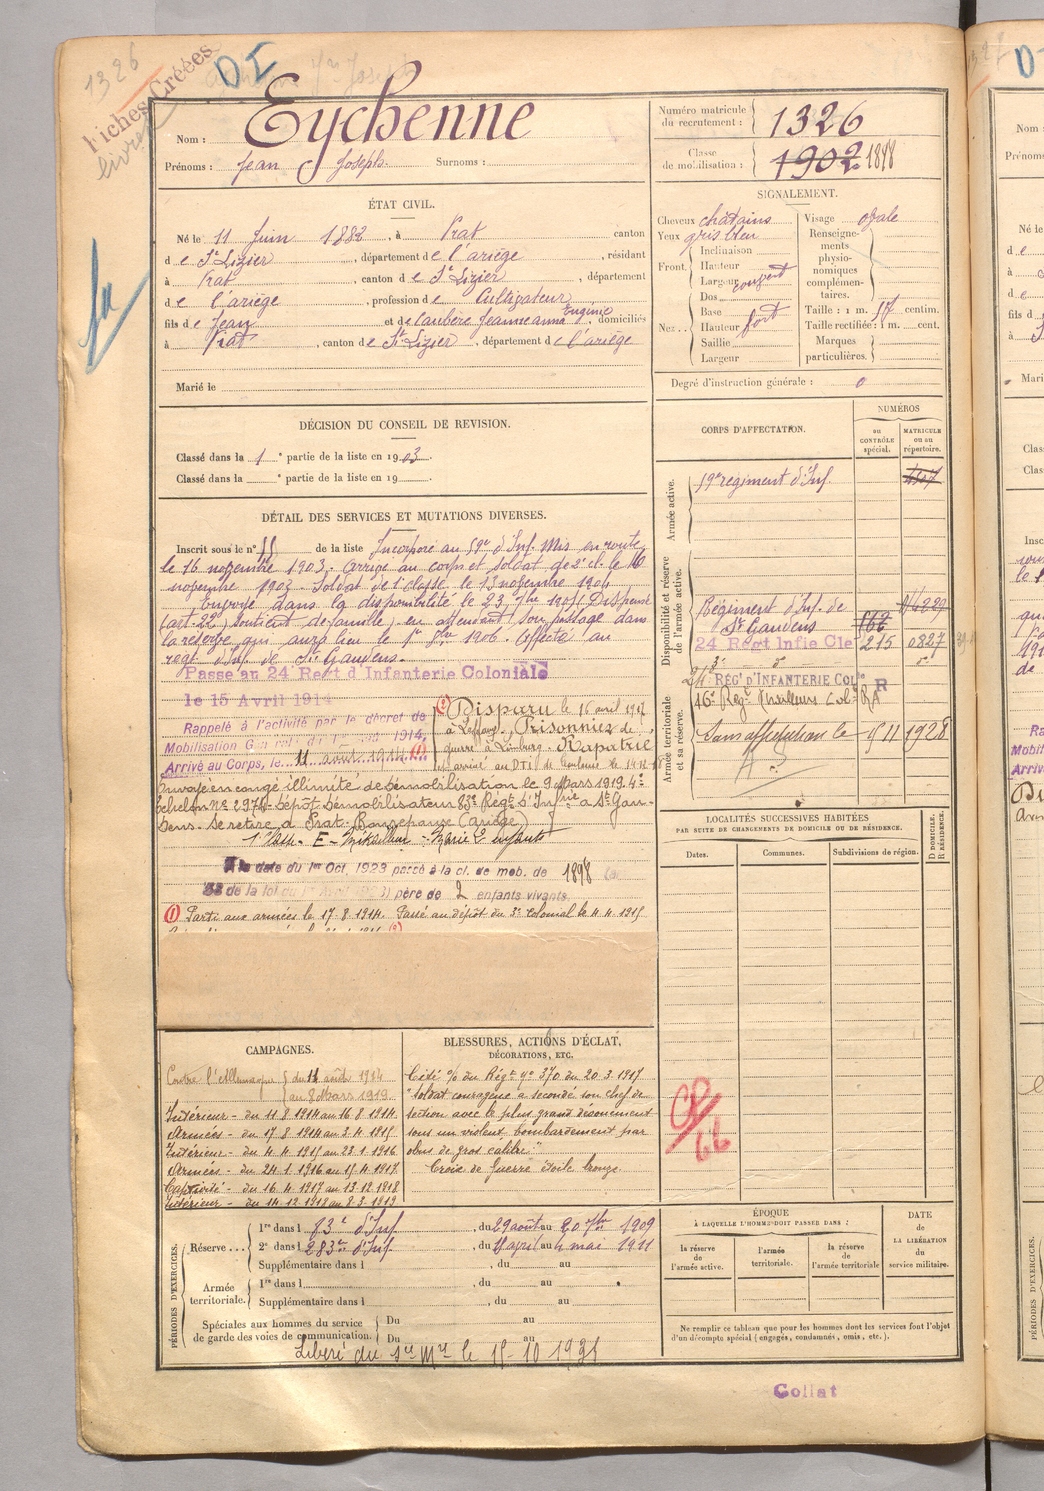 1326
Fiches Créées
DI
Nom : Eychenne
Prénoms : Jean Joseph Surnoms :
Numéro matricule du recrutement : 1326
Classe de mobilisation : 1902 1898
ÉTAT CIVIL.
Né le 11 Juin 1882, à Prat canton
de St Lizier, département de l'ariège, résidant
à Prat, canton de St Lizier, département
de l'ariège, profession de Cultivateur
fils de Jean et de Caubère Jeanneanna Eugénie, domiciliés
à Prat, canton de St Lizier, département de l'ariège
Marié le
SIGNALEMENT.
Cheveux châtains
Yeux gris bleu
Front. Inclinaison
Hauteur
Largeur
Nez Dos
Base
Hauteur fort
Saillie
Largeur
Visage ovale
Renseignements physionomiques complémentaires.
Taille : 1 m. 57 centim.
Taille rectifiée : 1 m. cent.
Marques particulières.
Degré d'instruction générale : 0
DÉCISION DU CONSEIL DE REVISION.
Classé dans la 1e partie de la liste en 1903.
Classé dans la e partie de la liste en 19
DÉTAIL DES SERVICES ET MUTATIONS DIVERSES.
Inscrit sous le n° 55 de la liste Incorporé au 59e d'Inf. Mis en route
le 16 novembre 1903. Arrivé au corps et soldat de 2e cl. le 16
novembre 1903. Soldat de 1e classe le 13 novembre 1904
Envoyé dans la disponibilité le 23 7bre 1905 Dispensé
(art. 22) soutient de famille) en attendant son passage dans
la réserve qui aura lieu le 1er 9bre 1906. Affecté au
régt d'Inf. de St Gaudens.
Passé au 24e Regt d'Infanterie Coloniale
le 15 Avril 1914
Rappelé à l'activité par le décret de
Mobilisation Générale du 1er août 1914,
Arrivé au Corps, le 11 août 1914 (1)
(2) Disparu le 16 avril 1917
à Laffaux. Prisonnier de
guerre à Limburg. Rapatrié
arrivé au DTI de Toulouse le 14.12.18
Envoyé en congé illimité de démobilisation le 9 Mars 1919. 4e
échelon No 2976. Dépôt démobilisateur 83e Régt d'Infrie à St Gaudens. Se retire à Prat-Bonrepaux (Ariège)
Marié 2 enfants
A la date du 1er Oct. 1923 passé à la cl. de mob. de 1898
de la loi du 1er Avril 1923) père de 2 enfants vivants.
(1) Parti aux armées le 17.8.1914. Passé au dépôt du 3e Colonial le 4.4.1915
CORPS D'AFFECTATION.
NUMÉROS
au CONTRÔLE spécial.
MATRICULE ou au répertoire.
Armée active.
59e régiment d'Inf.
Disponibilité et réserve de l'armée active.
Régiment d'Inf. de St Gaudens
24 Regt Infie Cle 215 0827
24e RÉGt d'INFANTERIE COLle R
Armée territoriale et sa réserve.
16e Régt Tirailleurs Col. RA
Sans affectation le 15 11 1928
LOCALITÉS SUCCESSIVES HABITÉES
PAR SUITE DE CHANGEMENTS DE DOMICILE OU DE RÉSIDENCE.
Dates. Communes. Subdivisions de région. D DOMICILE. R RÉSIDENCE.
CAMPAGNES.
Contre l'Allemagne du 11 août 1914
au 8 Mars 1919.
Intérieur - du 11.8.1914 au 16.8.1914.
Armées - du 17.8.1914 au 3.4.1915
Intérieur - du 4.4.1915 au 23.1.1916
Armées - du 24.1.1916 au 15.4.1917.
Captivité - du 16.4.1917 au 13.12.1918
Intérieur - du 14.12.1918 au 8.3.1919
BLESSURES, ACTIONS D'ÉCLAT,
DÉCORATIONS, ETC.
Cité o/o du Régt no 370 du 20.3.1917
"soldat courageux a secondé son chef de
section avec le plus grand dévouement
sous un violent bombardement par
obus de gros calibre."
Croix de Guerre étoile bronze.
PÉRIODES D'EXERCICES.
Réserve... 1re dans l 83e d'Inf., du 29 août au 20 7bre 1909
2e dans l 283e d'Inf., du 18 april au 4 mai 1911
Supplémentaire dans l , du au
Armée territoriale. 1re dans l , du au
Supplémentaire dans l , du au
Spéciales aux hommes du service de garde des voies de communication. Du au
Du au
Libéré du sce Mre le 15-10 1931
ÉPOQUE
À LAQUELLE L'HOMME DOIT PASSER DANS :
la réserve de l'armée active.
l'armée territoriale.
la réserve de l'armée territoriale
DATE de LA LIBÉRATION du service militaire.
Ne remplir ce tableau que pour les hommes dont les services font l'objet
d'un décompte spécial (engagés, condamnés, omis, etc.).
Collat